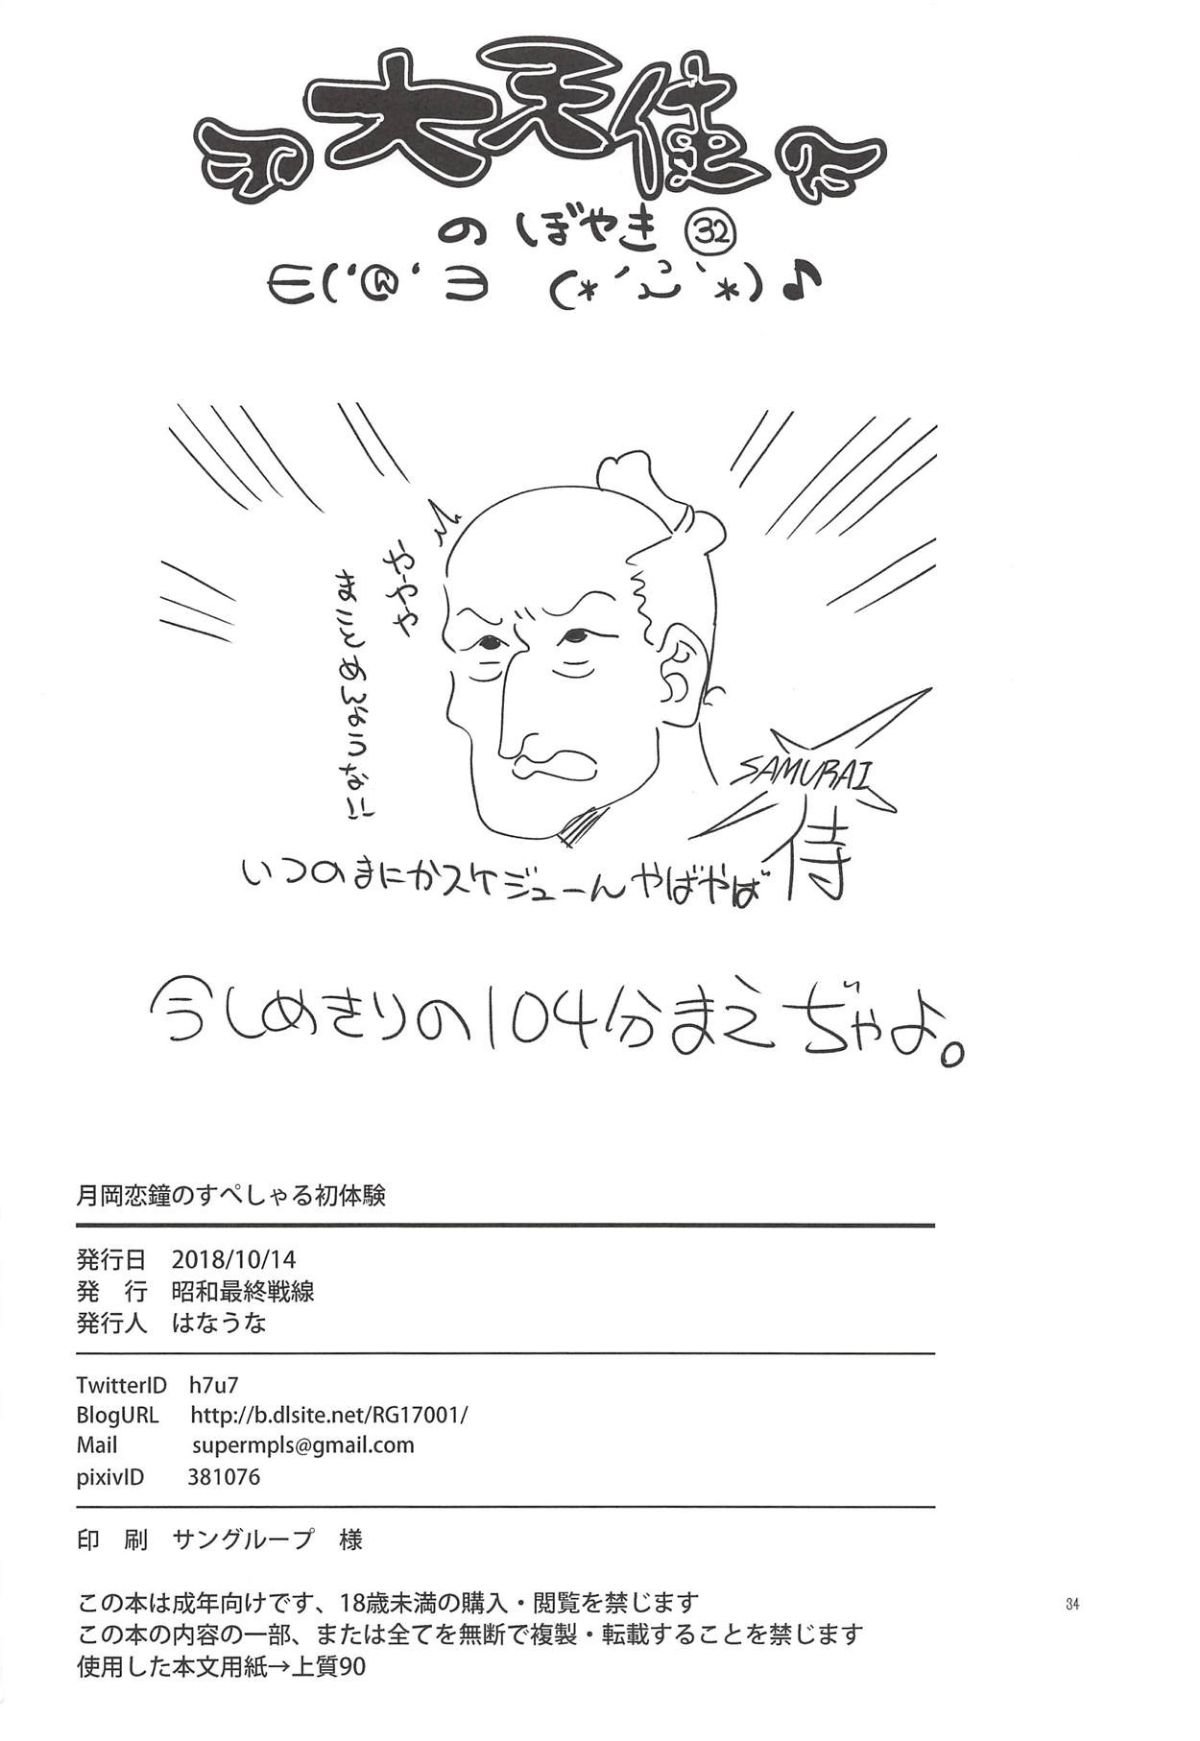 大天使
のぼやき㉜
∈('@'∋ (*´ω`*)♪
ややや
まことめんような!!
SAMURAI
侍
いつのまにかスケジューんやばやば
今しめきりの104分まえぢゃよ。
月岡恋鐘のすぺしゃる初体験
発行日 2018/10/14
発 行 昭和最終戦線
発行人 はなうな
TwitterID h7u7
BlogURL http://b.dlsite.net/RG17001/
Mail supermpls@gmail.com
pixivID 381076
印 刷 サングループ 様
この本は成年向けです、18歳未満の購入・閲覧を禁じます
この本の内容の一部、または全てを無断で複製・転載することを禁じます
使用した本文用紙→上質90
34